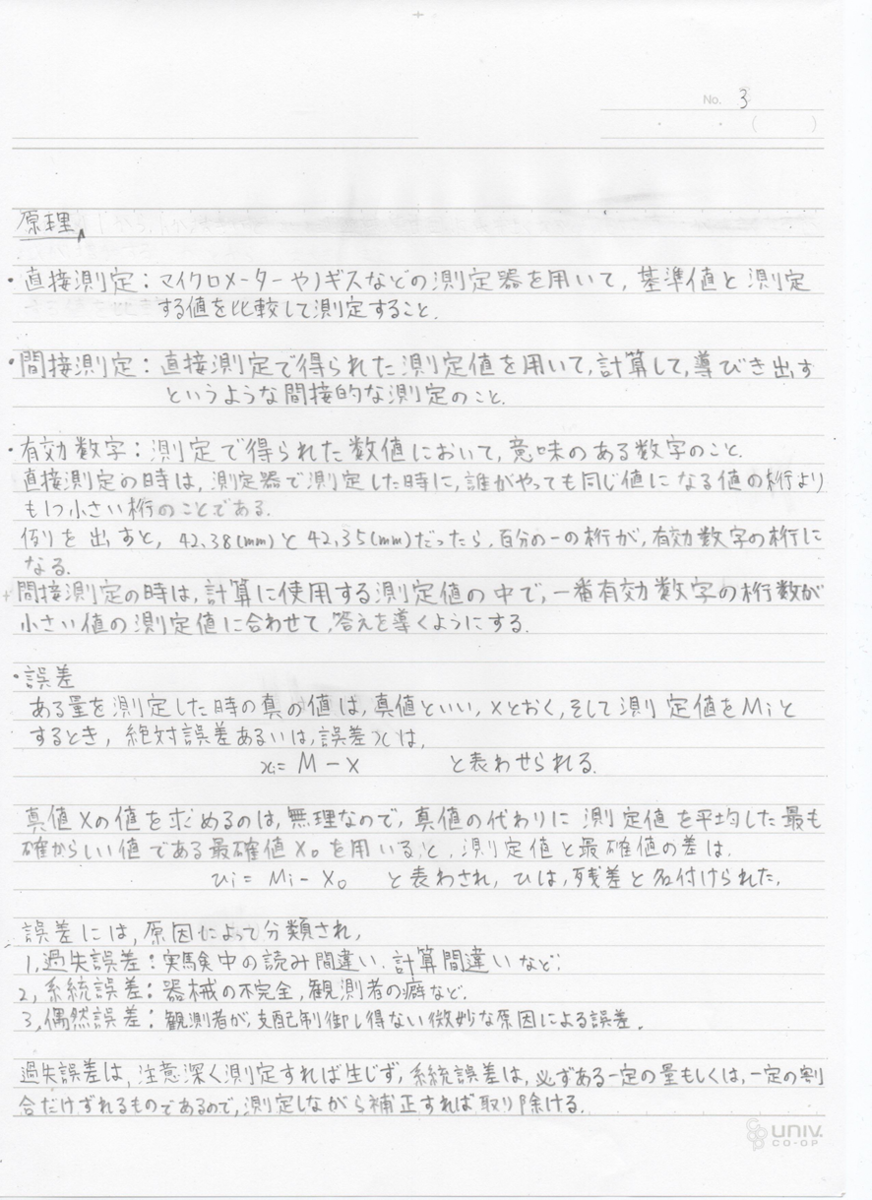 No. 3
( )
原理
・直接測定：マイクロメーターやノギスなどの測定器を用いて, 基準値と測定
する値を比較して測定すること.
・間接測定：直接測定で得られた測定値を用いて, 計算して, 導びき出す
というような間接的な測定のこと.
・有効数字：測定で得られた数値において, 意味のある数字のこと.
直接測定の時は, 測定器で測定した時に, 誰がやっても同じ値になる値の桁より
も1つ小さい桁のことである.
例を出すと, 42.38(mm)と42.35(mm)だったら, 百分の一の桁が, 有効数字の桁に
なる.
間接測定の時は, 計算に使用する測定値の中で, 一番有効数字の桁数が
小さい値の測定値に合わせて, 答えを導くようにする.
・誤差
ある量を測定した時の真の値は, 真値といい, Xとおく, そして測定値をMiと
するとき, 絶対誤差あるいは, 誤差xは,
xi = M - X と表わせられる.
真値Xの値を求めるのは, 無理なので, 真値の代わりに測定値を平均した最も
確からしい値である最確値X₀を用いると, 測定値と最確値の差は.
υi = Mi - X₀ と表わされ, υは, 残差と名付けられた.
誤差には, 原因によって分類され,
1, 過失誤差：実験中の読み間違い. 計算間違いなど.
2, 系統誤差：器械の不完全, 観測者の癖など.
3, 偶然誤差：観測者が, 支配制御し得ない微妙な原因による誤差.
過失誤差は, 注意深く測定すれば生じず, 系統誤差は, 必ずある一定の量もしくは, 一定の割
合だけずれるものであるので, 測定しながら補正すれば取り除ける.
UNIV.
CO-OP